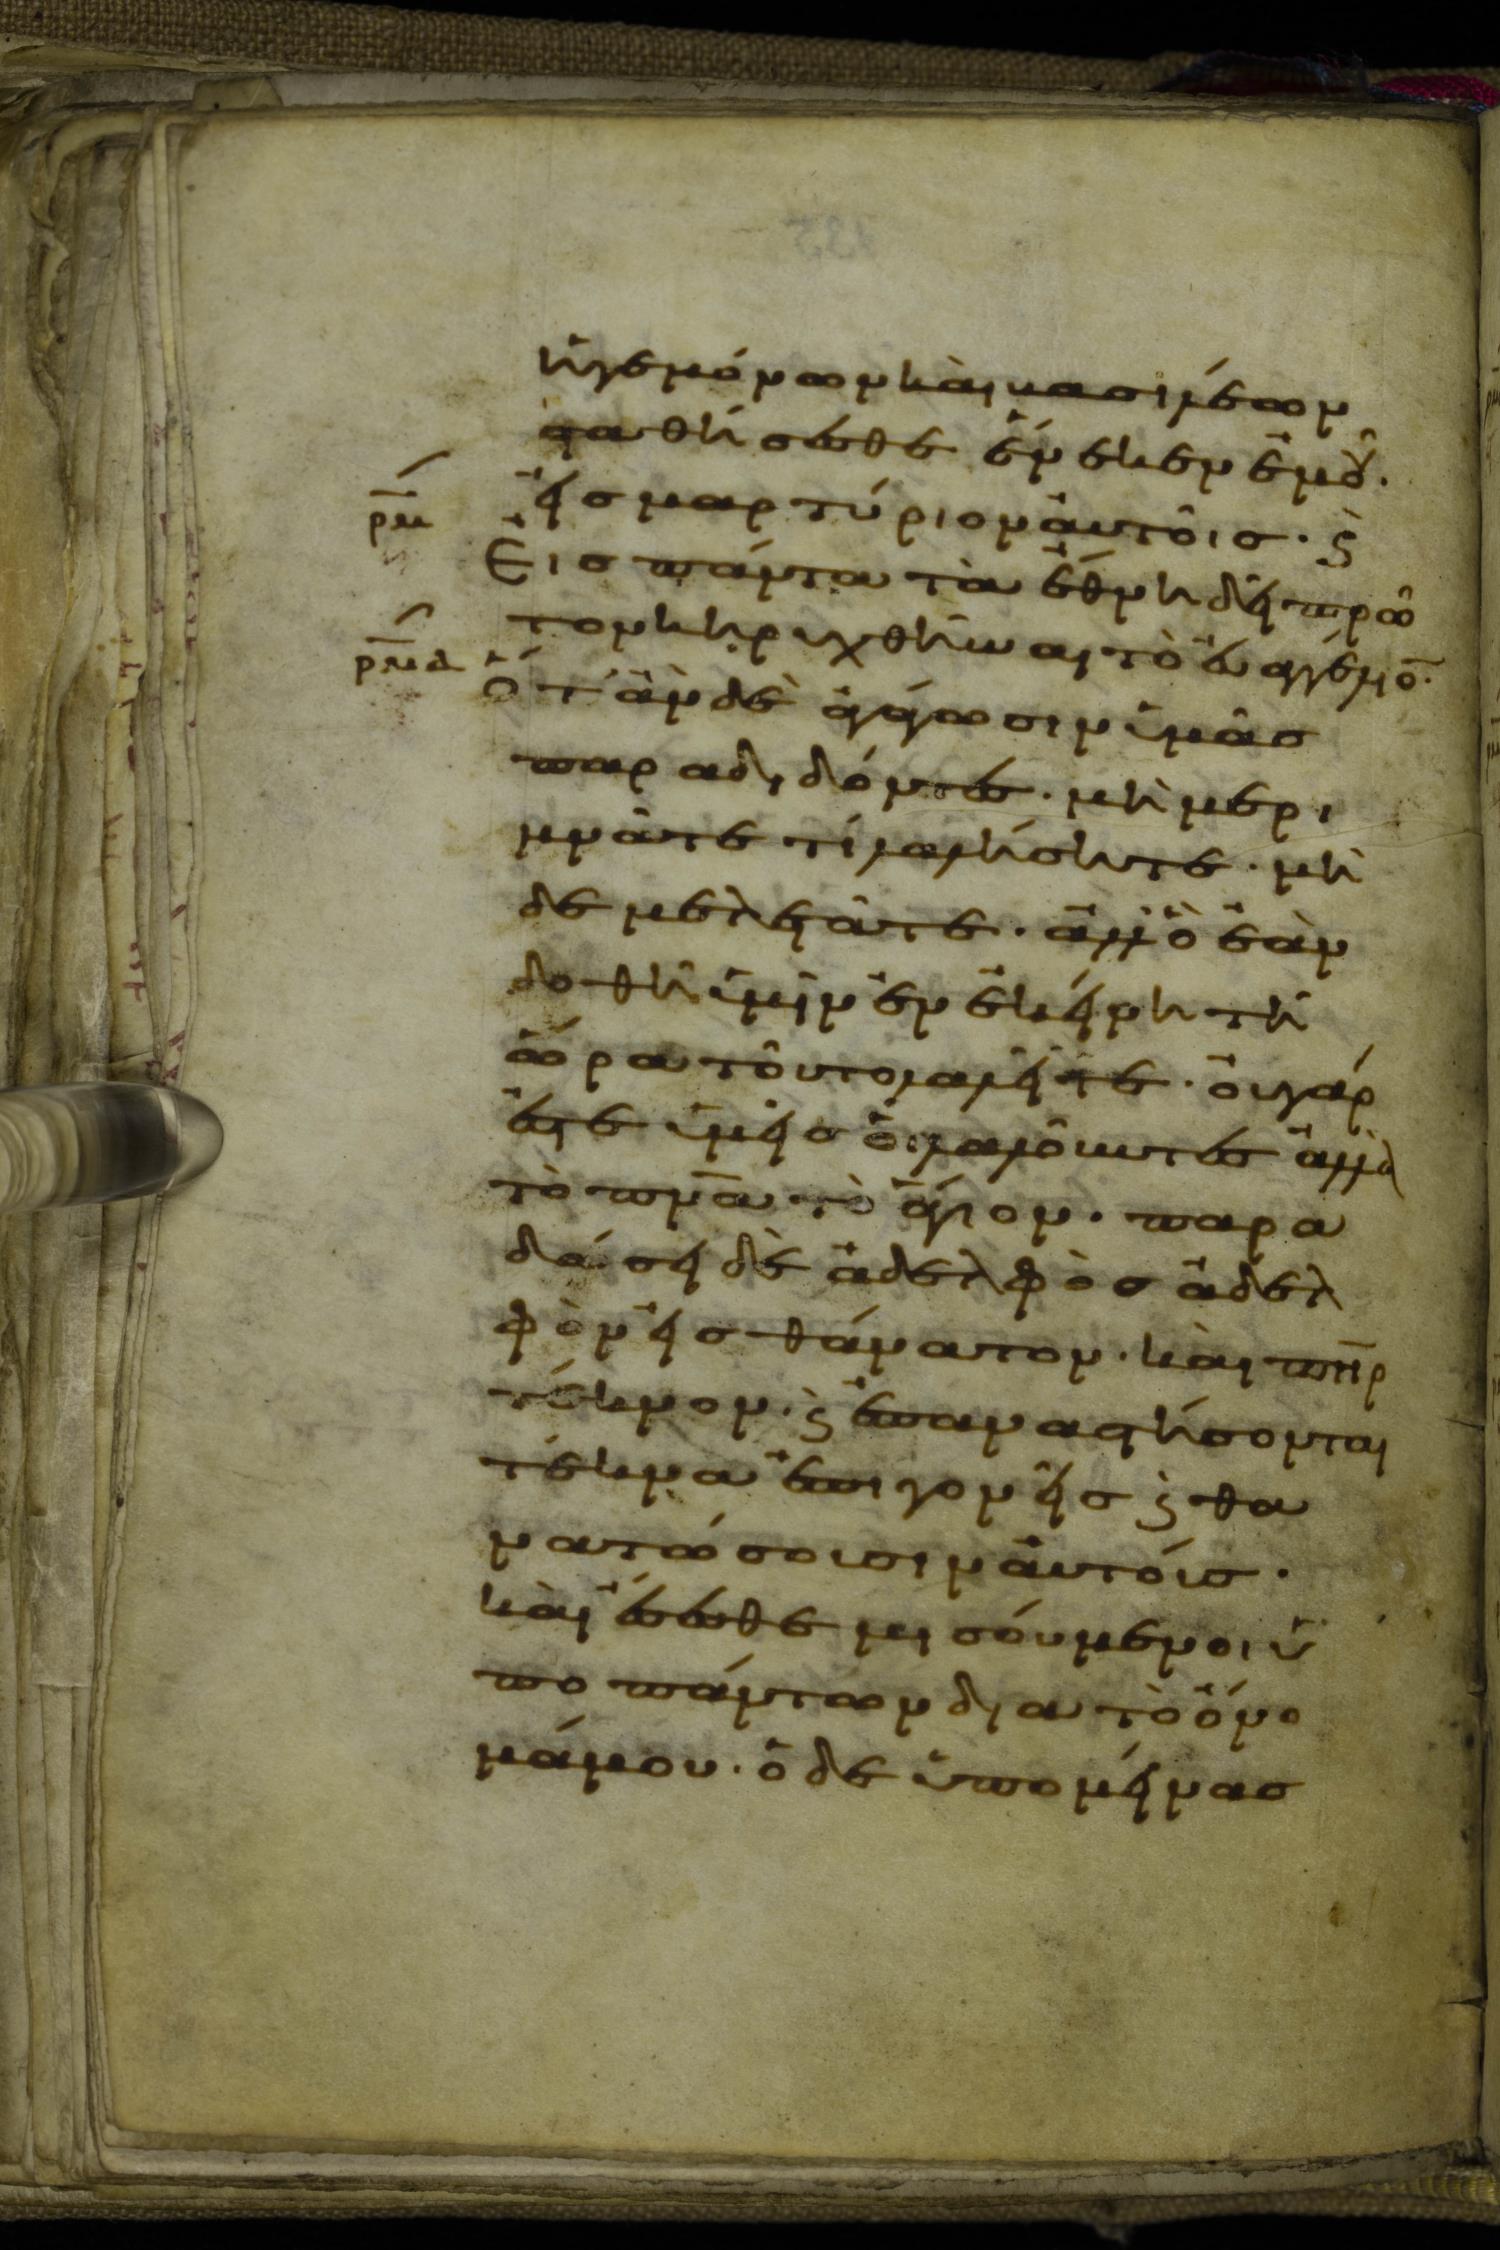 ἡγεμόνων καὶ βασιλέων
σταθήσεσθε ἕνεκεν ἐμοῦ.
ρμ εἰς μαρτύριον αὐτοῖς. ϗ
Εἰς πάντα τὰ ἔθνη δεῖ πρῶ
τον κηρυχθῆναι τὸ εὐαγγέλιο̅.
ρμα ὅταν δὲ ἀγάγωσιν ὑμᾶς
παραδιδόντες. μὴ μερι
μνᾶτε τί λαλήσητε. μὴ
δὲ μελετᾶτε. ἀλλ' ὃ ἐὰν
δοθῆ ὑμῖν ἐν ἐκείνη τῆ
ὥρα τοῦτο λαλεῖτε. οὐ γάρ
ἐστε ὑμεῖς οἱ λαλοῦντες ἀλλὰ
τὸ πν̅α τὸ ἅγιον. παρα
δώσει δὲ ἀδελφὸς ἀδελ
φὸν εἰς θάνατον. καὶ πη̅ρ
τέκνον. ϗ ἐπαναστήσονται
τέκνα ἐπὶ γονεῖς ϗ θα
νατώσουσιν αὐτούς.
καὶ ἔσεσθε μισούμενοι ὑ
πὸ πάντων διὰ τὸ ὄνο
μά μου. ὁ δὲ ὑπομείνας